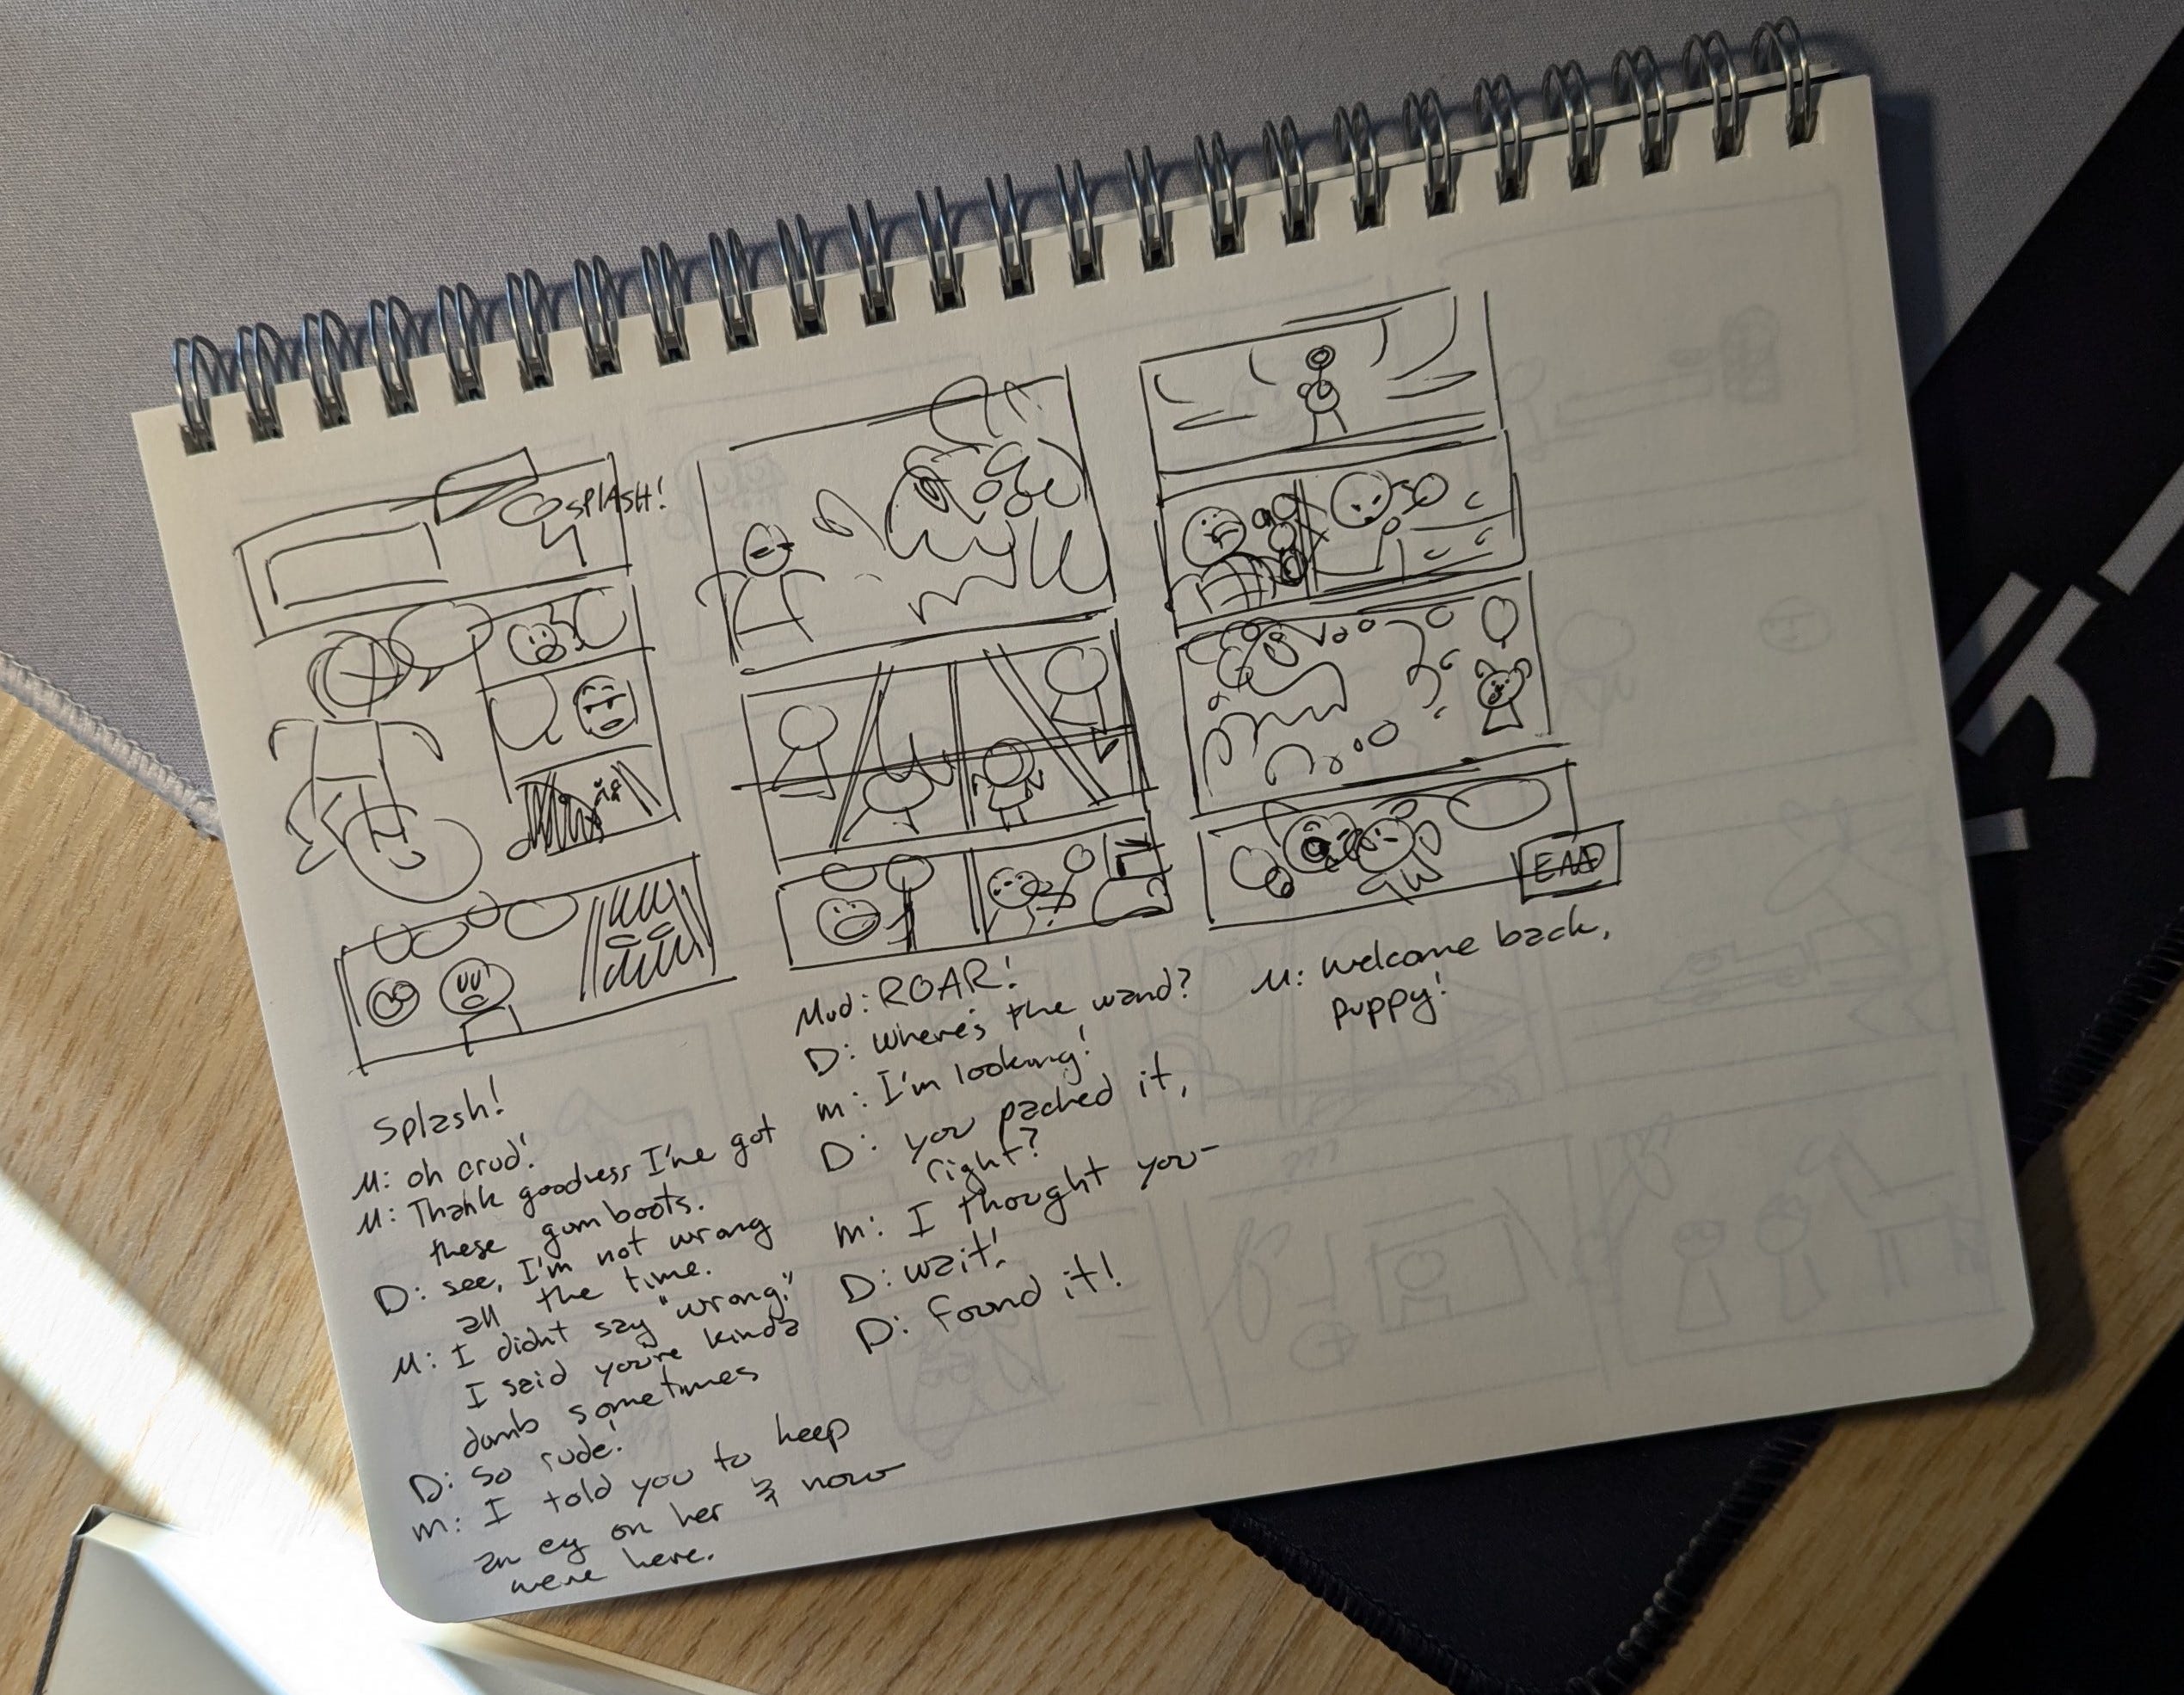 SPLASH!
END
Splash!
M: oh crud!
M: Thank goodness I've got
these gumboots.
D: see, I'm not wrong
all the time.
M: I didn't say "wrong."
I said you're kinda
dumb sometimes
D: So rude!
m: I told you to keep
an ey on her & now
we're here.
Mud: ROAR!
D: Where's the wand?
m: I'm looking!
D: you packed it,
right?
m: I thought you-
D: wait!
D: Found it!
M: Welcome back,
puppy!